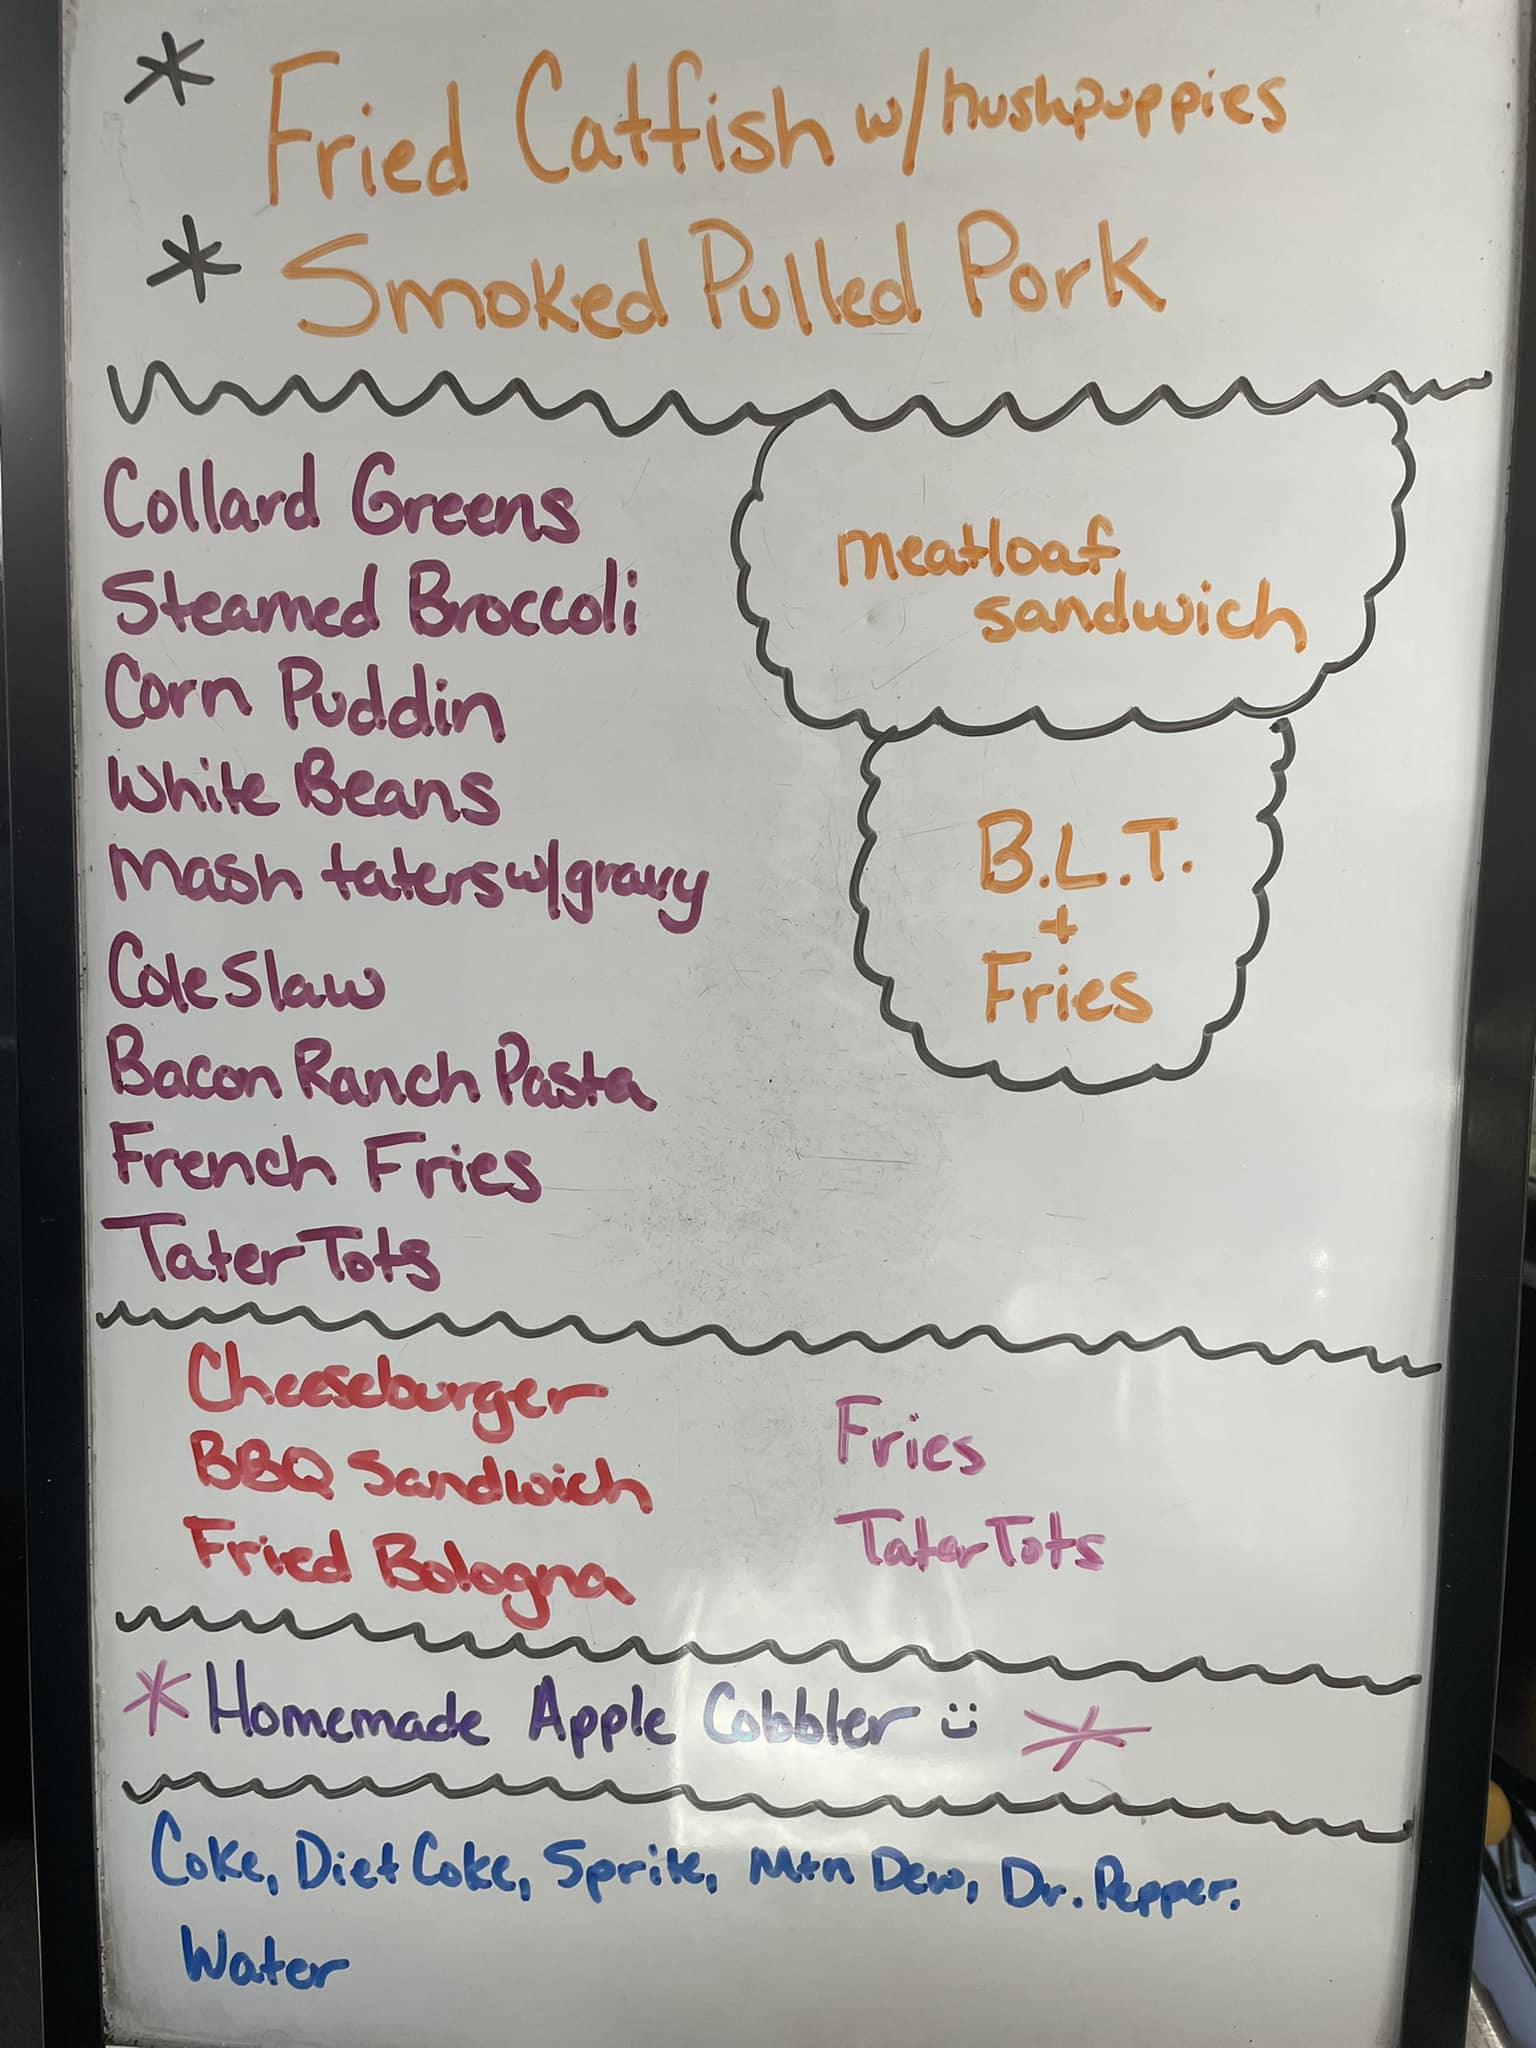 * Fried Catfish w/hushpuppies
* Smoked Pulled Pork
Collard Greens
Steamed Broccoli
Corn Puddin
White Beans
Mash taters w/gravy
Cole Slaw
Bacon Ranch Pasta
French Fries
Tater Tots
meatloaf
sandwich
B.L.T.
+
Fries
Cheeseburger
BBQ Sandwich
Fried Bologna
Fries
Tater Tots
* Homemade Apple Cobbler :) *
Coke, Diet Coke, Sprite, Mtn Dew, Dr. Pepper.
Water